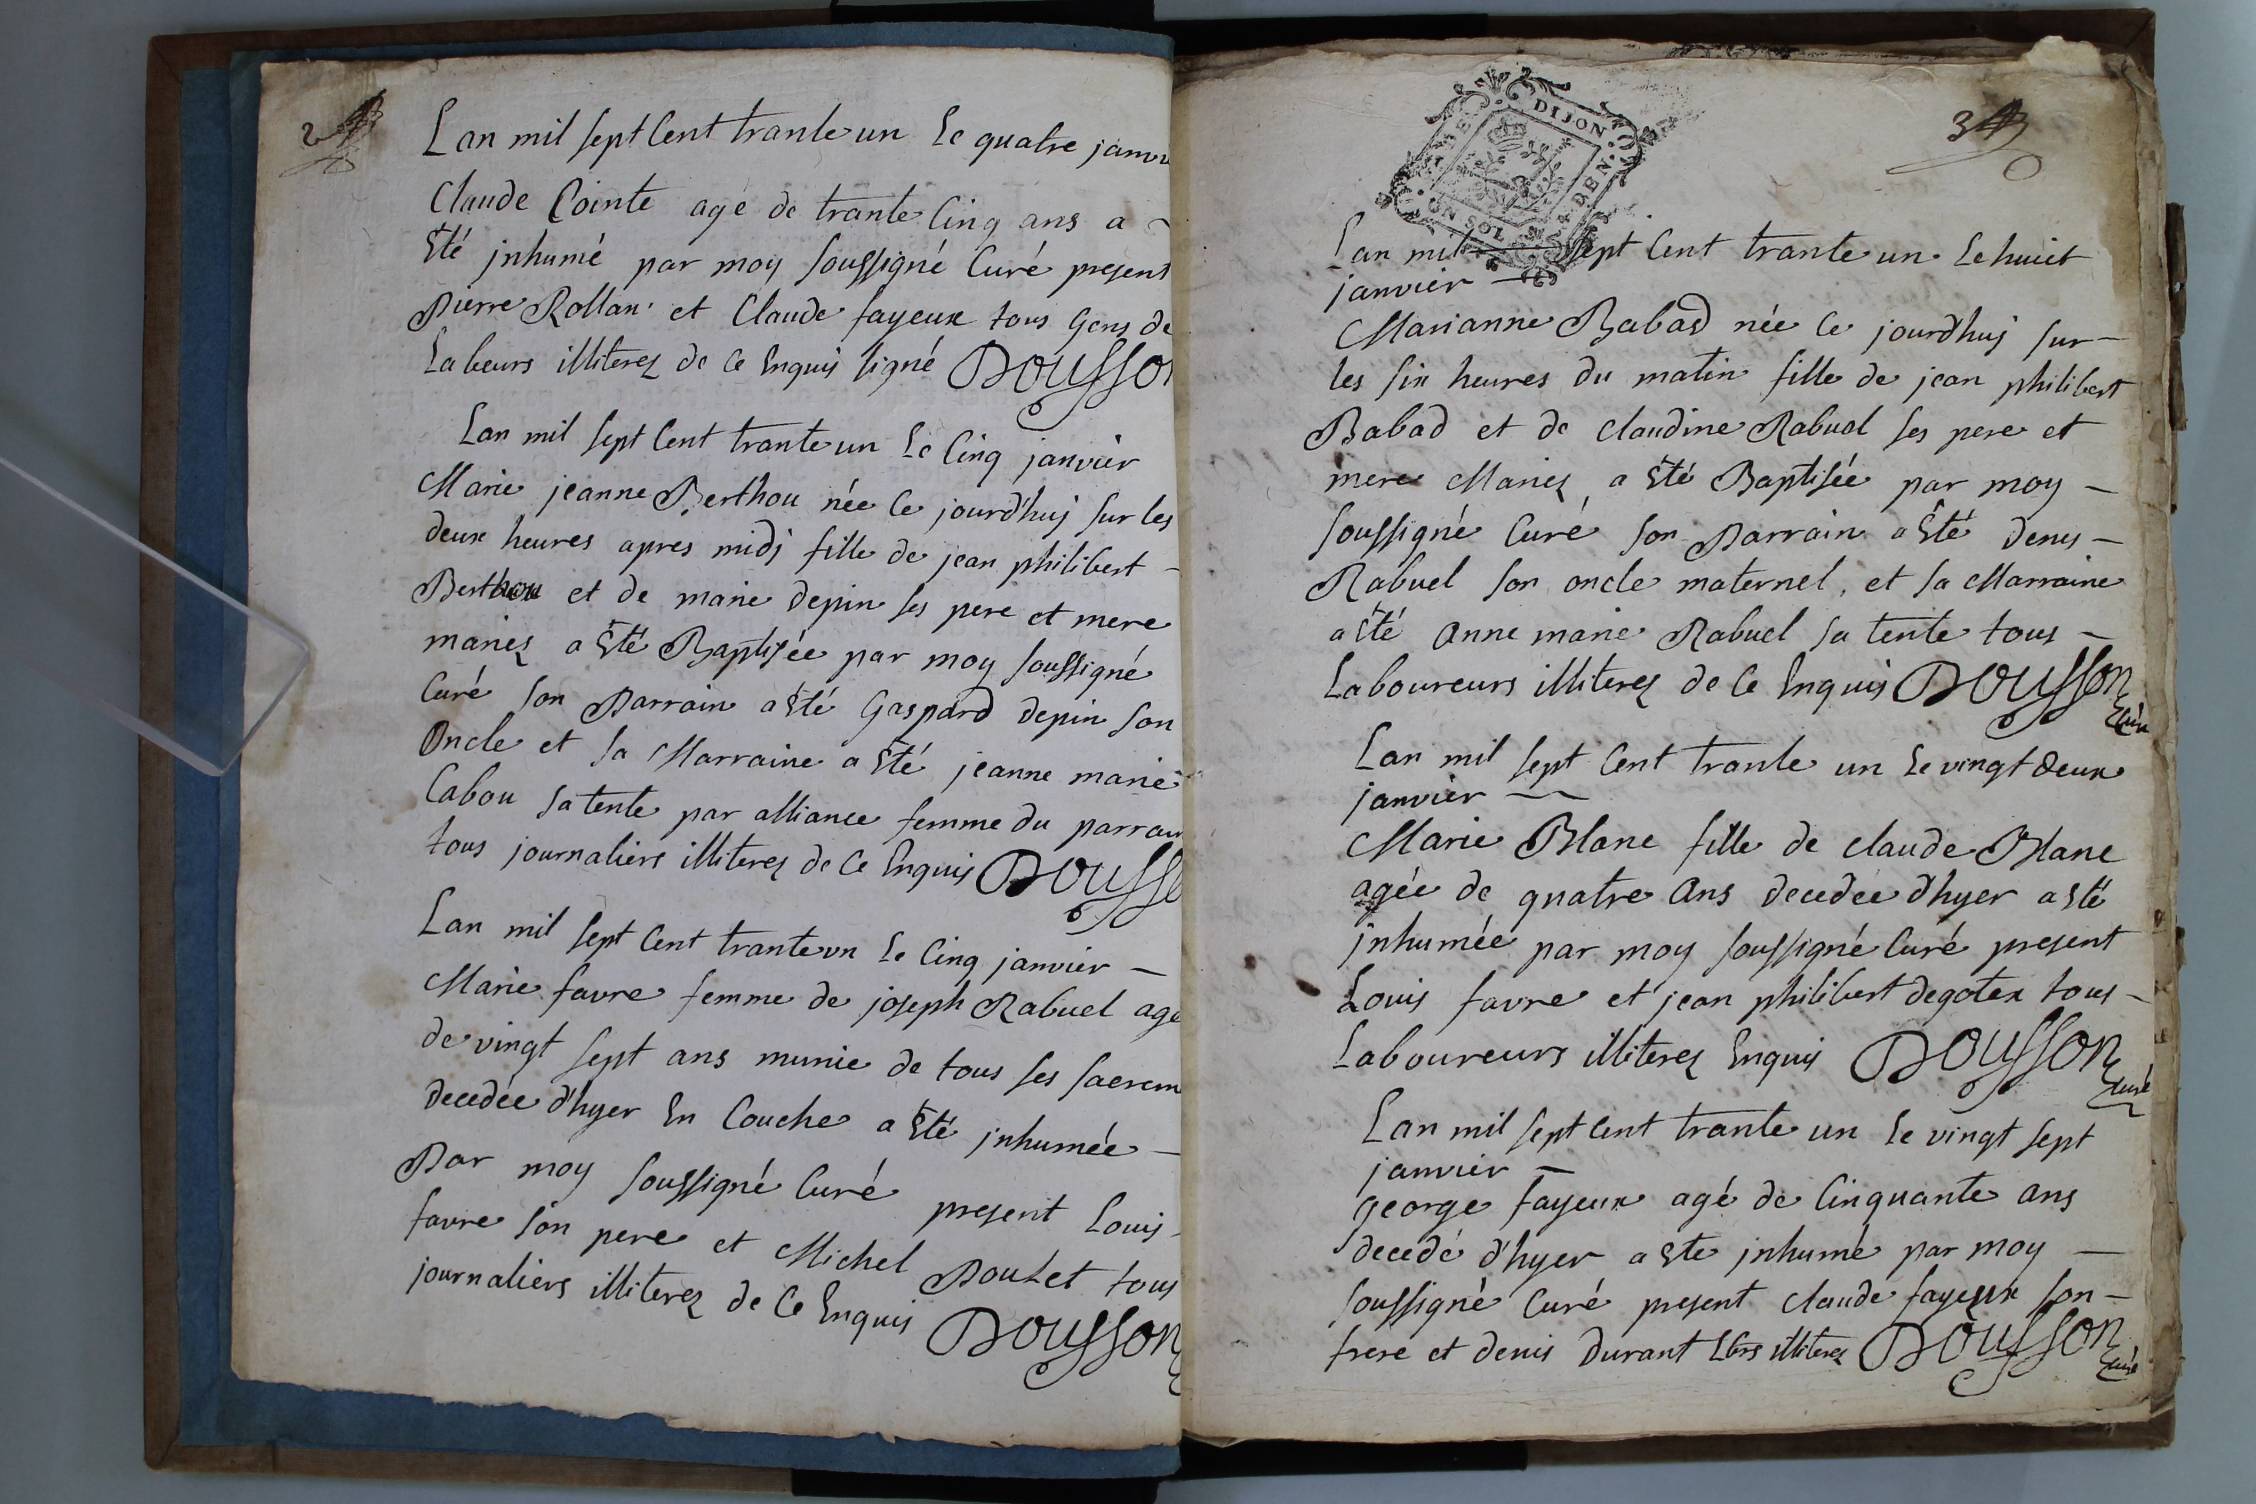 2
Lan mil sept Cent trante un Le quatre janv
Claude Cointe agé de trante Cinq ans a
Eté jnhumé par moy soussigné Curé present
Pierre Rollan et Claude fayeux tous Gens de
Labeurs illiterez de Ce Enquis signé Dousson
Lan mil sept Cent trante un Le Cinq janvier
Marie jeanne Berthou née Ce jourd'huj sur les
deux heures apres midj fille de jean philibert
Berthou et de marie depin ses pere et mere
mariez a Eté Baptisée par moy soussigné
Curé son Parrain a Eté Gaspard depin son
Oncle et sa Marraine a Eté jeanne marie
Cabou sa tente par alliance femme du parrain
tous journaliers illiterez de Ce Enquis Douss
Lan mil sept Cent trante un Le Cinq janvier
Marie favre femme de joseph Rabuel agé
de vingt sept ans munie de tous ses sacrem
decedée d'hyer En Couche a Eté jnhumée
Par moy soussigné Curé present Louis
favre son pere et Michel Poulet tous
journaliers illiterez de Ce Enquis Dousson
3
DIJON
GEN. DEN.
UN SOL
Lan mil sept Cent trante un Le huict
janvier
Marianne Babad née Ce jourd'huj sur
les six heures du matin fille de jean philibert
Babad et de Claudine Rabuel ses pere et
mere Mariez a Eté Baptisée par moy
soussigné Curé son Parrain a Eté denis
Rabuel son oncle maternel, et sa Marraine
a Eté anne marie Rabuel sa tente tous
Laboureurs illiterez de Ce Enquis Dousson
Curé
Lan mil sept Cent trante un Le vingt deux
janvier
Marie Blanc fille de Claude Blanc
agée de quatre ans decedée d'hyer a Eté
jnhumée par moy soussigné Curé present
Louis favre et jean philibert degotex tous
Laboureurs illiterez Enquis Dousson
Curé
Lan mil sept Cent trante un Le vingt sept
janvier
George fayeux agé de Cinquante ans
decedé d'hyer a Eté jnhumé par moy
soussigné Curé present Claude fayeux son
frere et denis Durant Lbrs illiterez Dousson
Curé